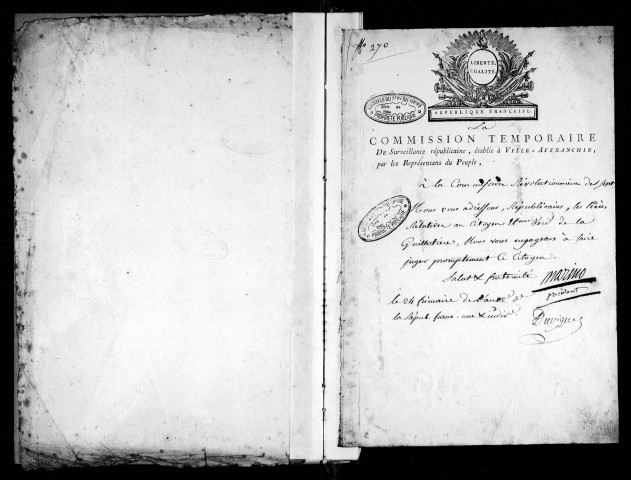 No 270
LIBERTÉ,
EGALITÉ.
REPUBLIQUE FRANÇAISE.
La
COMMISSION TEMPORAIRE
De Surveillance républicaine, établie à VILLE-AFFRANCHIE,
par les Représentans du Peuple,
à la Commission Révolutionnaire des sept
Nous vous adressons, Républicains, les Pièces
Relatives au Citoyen de la
Guillotière, Nous vous engageons à faire
juger promptement Ce Citoyen.
Salut & fraternité
marino
président
le 24 frimaire de l'an 2 de
la Répub. franc. une & indivis.
Duvigne